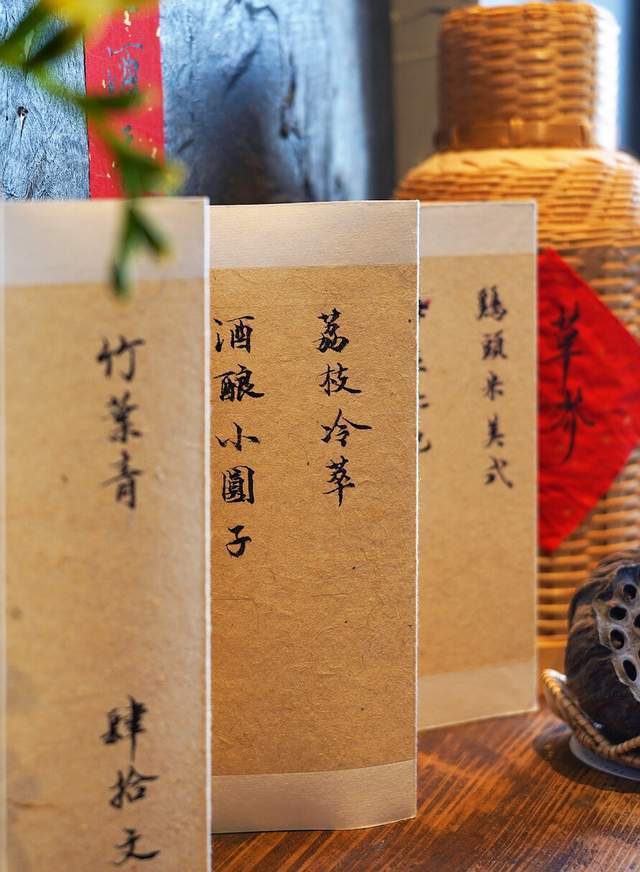 竹葉青
肆拾文
荔枝冷萃
酒酿小圓子
鷄頭米美式